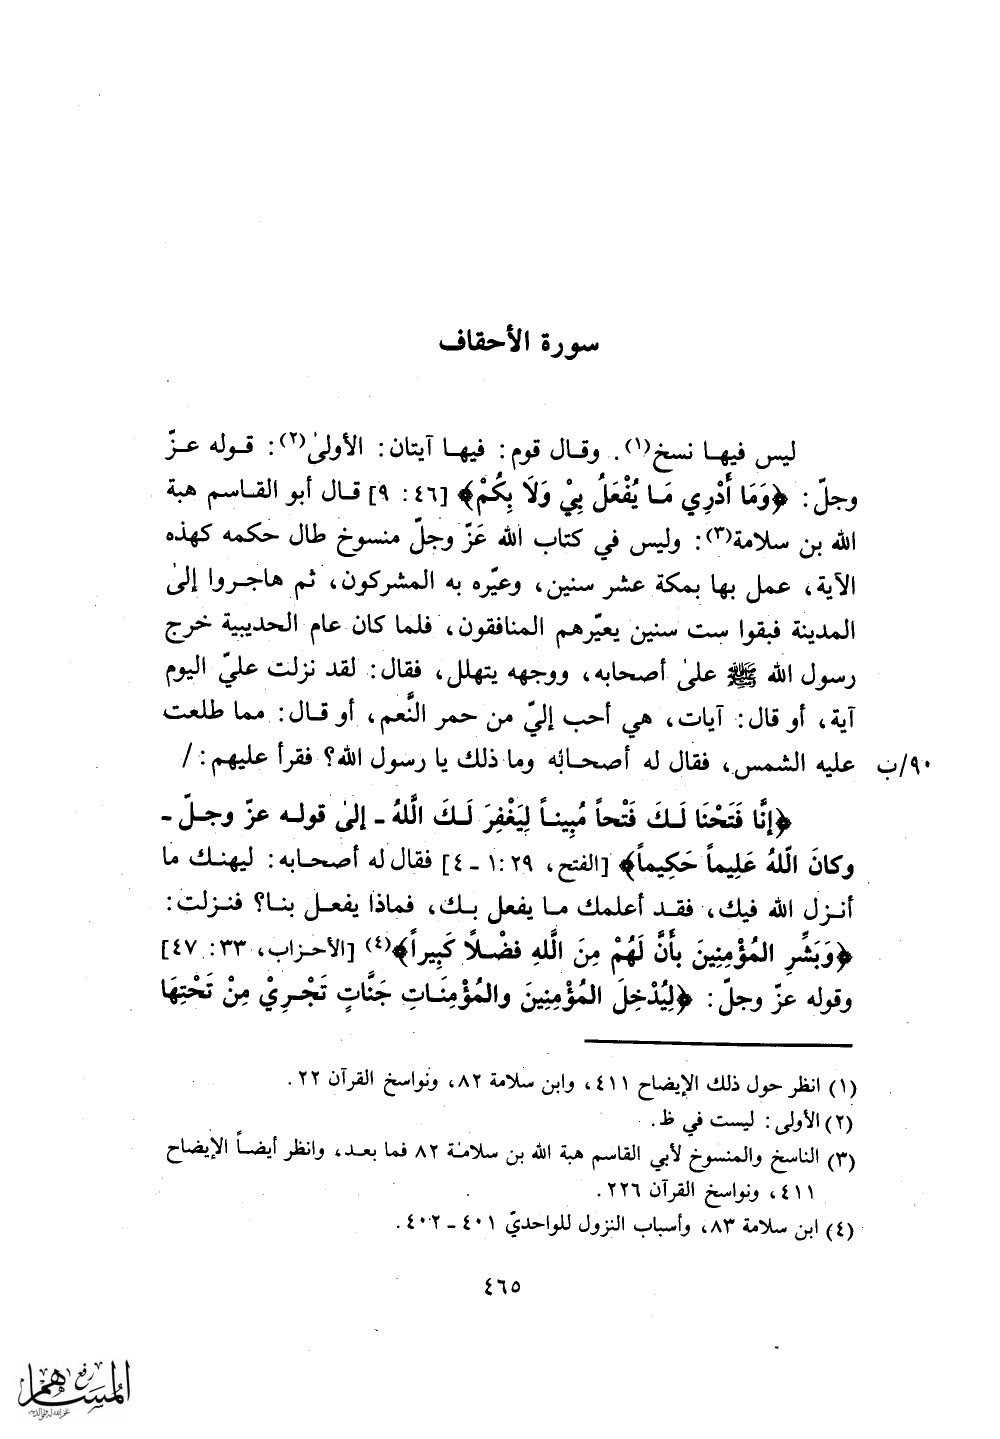 سورة الأحقاف
ليس فيهـا نسخ(١). وقـال قوم: فيهـا آيتان: الأولىٰ(٢): قـوله عـزّ
وجلّ: ﴿وَمَا أَدْرِي مَـا يُفْعَلُ بِيْ وَلَا بِكُمْ﴾ [٤٦: ٩] قـال أبو القـاسم هبة
الله بن سلامة(٣): وليس في كتاب الله عَزّ وجلّ منسوخ طال حكمه كهذه
الآية، عمل بها بمكة عشر سنين، وعيّره به المشركون، ثم هاجـروا إلىٰ
المدينة فبقوا ست سنين يعيّرهم المنافقون، فلما كان عام الحديبية خرج
رسول الله ﷺ علىٰ أصحابه، ووجهه يتهلل، فقال: لقد نزلت عليّ اليوم
آية، أو قال: آيات، هي أحب إليّ من حمر النَّعم، أو قـال: مما طلعت
عليه الشمس، فقال له أصحـابُه وما ذلك يا رسول الله؟ فقرأ عليهم: / ٩٠/ب
﴿إنَّا فَتَحْنَا لَـكَ فَتْحاً مُبِينـاً لِيَغْفِرَ لَـكَ الَّلهُ ـ إلىٰ قولـه عزّ وجـلّ ـ
وكانَ الّلهُ عَلِيماً حَكِيماً﴾ [الفتح، ٢٩: ١ ـ ٤] فقال له أصحـابه: ليهنـك ما
أنـزل الله فيك، فقـد أعلمك مـا يفعل بـك، فماذا يفعـل بنـا؟ فنـزلت:
﴿وَبَشِّرِ المُؤْمِنِينَ بأَنَّ لَهُمْ مِنَ الَّلهِ فضْـلًا كَبِيراً﴾(٤) [الأحـزاب، ٣٣: ٤٧]
وقوله عزّ وجلّ: ﴿لِيُدْخِلَ المُؤْمِنِينَ والمُؤْمِنَـاتِ جَنَّاتٍ تَجْـرِيْ مِنْ تَحْتِهَا
(١) انظر حول ذلك الإيضاح ٤١١، وابن سلامة ٨٢، ونواسخ القرآن ٢٢.
(٢) الأولى: ليست في ظ.
(٣) الناسخ والمنسوخ لأبي القاسم هبة الله بن سلامـة ٨٢ فما بعـد، وانظر أيضـاً الإيضاح
٤١١، ونواسخ القرآن ٢٢٦.
(٤) ابن سلامة ٨٣، وأسباب النزول للواحديّ ٤٠١ ـ ٤٠٢.
٤٦٥
رفع
المساهم